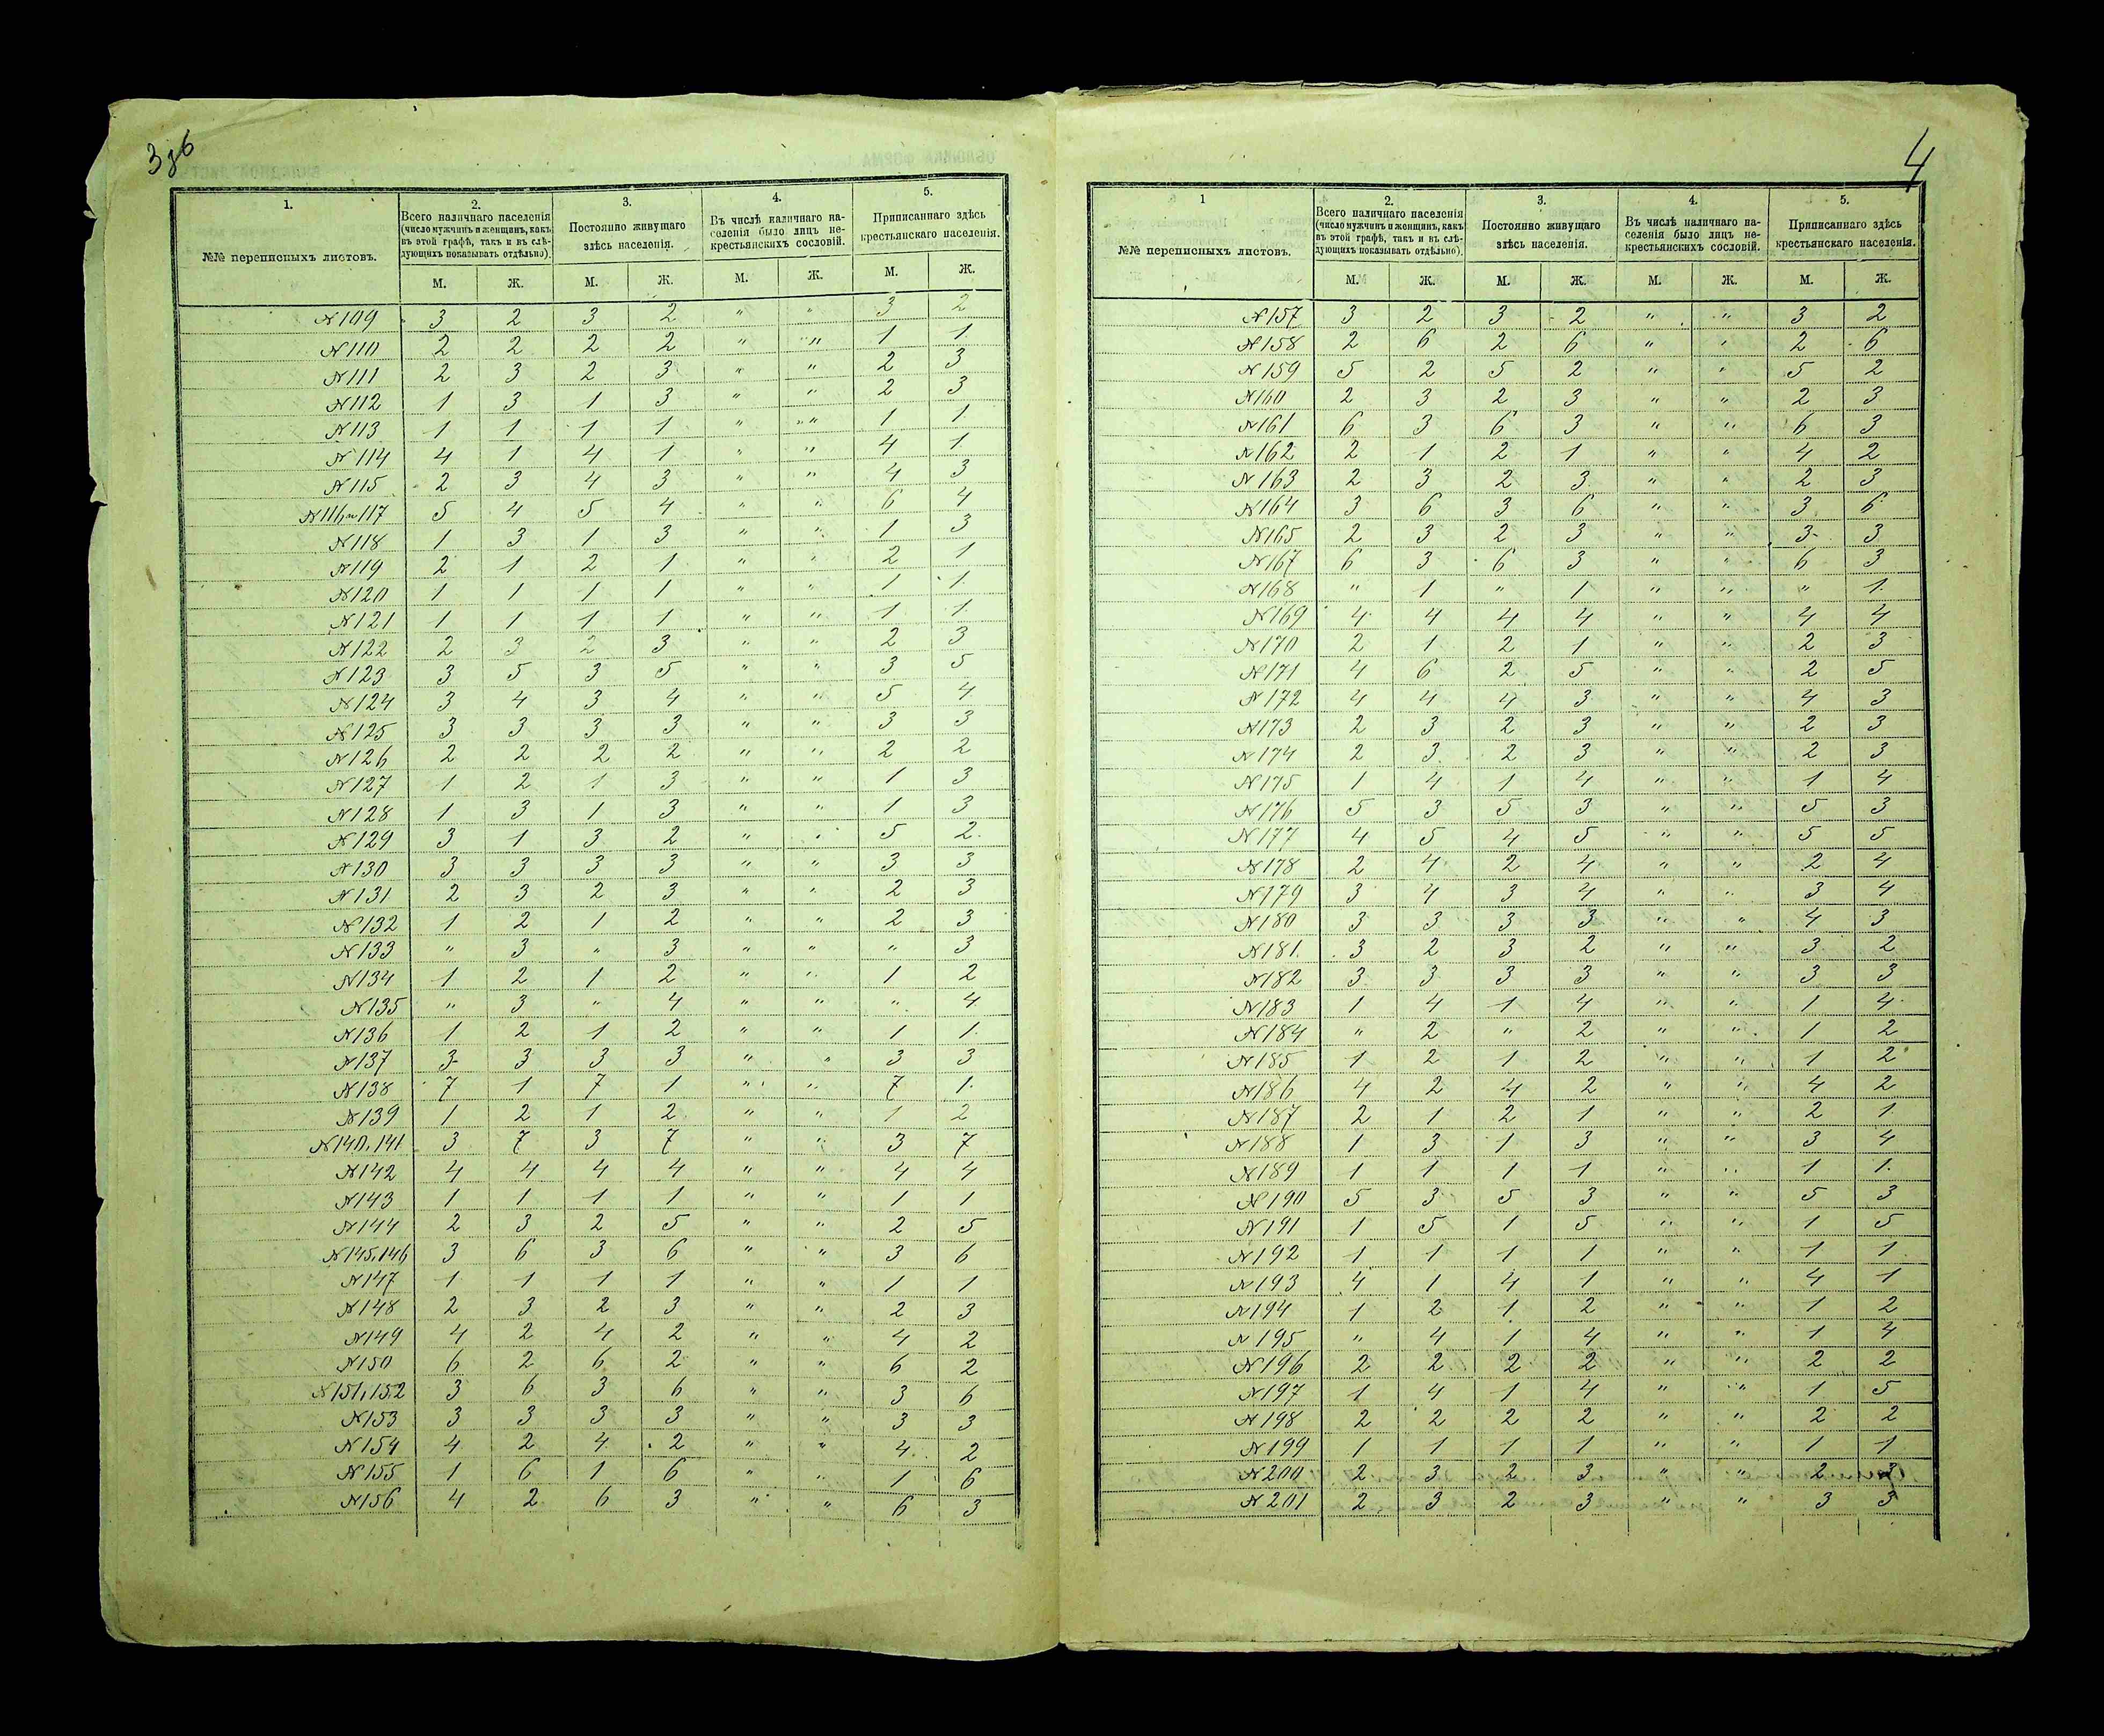 3 об
1. 2. 3. 4. 5.
№№ переписныхъ листовъ. Всего наличнаго населенія (число мужчинъ и женщинъ, какъ въ этой графѣ, такъ и въ слѣдующихъ показывать отдѣльно). Постоянно живущаго здѣсь населенія. Въ числѣ наличнаго населенія было лицъ некрестьянскихъ сословій. Приписаннаго здѣсь крестьянскаго населенія.
М. Ж. М. Ж. М. Ж. М. Ж.
№109 3 2 3 2 " " 3 2
№110 2 2 2 2 " " 1 1
№111 2 3 2 3 " " 2 3
№112 1 3 1 3 " " 2 3
№113 1 1 1 1 " " 1 1
№114 4 1 4 1 " " 4 1
№115 2 3 4 3 " " 4 3
№116 и 117 5 4 5 4 " " 6 4
№118 1 3 1 3 " " 1 3
№119 2 1 2 1 " " 2 1
№120 1 1 1 1 " " 1 1
№121 1 1 1 1 " " 1 1
№122 2 3 2 3 " " 2 3
№123 3 5 3 5 " " 3 5
№124 3 4 3 4 " " 5 4
№125 3 3 3 3 " " 3 3
№126 2 2 2 2 " " 2 2
№127 1 2 1 3 " " 1 3
№128 1 3 1 3 " " 1 3
№129 3 1 3 2 " " 5 2
№130 3 3 3 3 " " 3 3
№131 2 3 2 3 " " 2 3
№132 1 2 1 2 " " 2 3
№133 " 3 " 3 " " " 3
№134 1 2 1 2 " " 1 2
№135 " 3 " 4 " " " 4
№136 1 2 1 2 " " 1 1
№137 3 3 3 3 " " 3 3
№138 7 1 7 1 " " 7 1
№139 1 2 1 2 " " 1 2
№140,141 3 7 3 7 " " 3 7
№142 4 4 4 4 " " 4 4
№143 1 1 1 1 " " 1 1
№144 2 3 2 5 " " 2 5
№145,146 3 6 3 6 " " 3 6
№147 1 1 1 1 " " 1 1
№148 2 3 2 3 " " 2 3
№149 4 2 4 2 " " 4 2
№150 6 2 6 2 " " 6 2
№151,152 3 6 3 6 " " 3 6
№153 3 3 3 3 " " 3 3
№154 4 2 4 2 " " 4 2
№155 1 6 1 6 " " 1 6
№156 4 2 6 3 " " 6 3
4
1 2. 3. 4. 5.
№№ переписныхъ листовъ. Всего наличнаго населенія (число мужчинъ и женщинъ, какъ въ этой графѣ, такъ и въ слѣдующихъ показывать отдѣльно). Постоянно живущаго здѣсь населенія. Въ числѣ наличнаго населенія было лицъ некрестьянскихъ сословій. Приписаннаго здѣсь крестьянскаго населенія.
М. Ж. М. Ж. М. Ж. М. Ж.
№157 3 2 3 2 " " 3 2
№158 2 6 2 6 " " 2 6
№159 5 2 5 2 " " 5 2
№160 2 3 2 3 " " 2 3
№161 6 3 6 3 " " 6 3
№162 2 1 2 1 " " 4 2
№163 2 3 2 3 " " 2 3
№164 3 6 3 6 " " 3 6
№165 2 3 2 3 " " 3 3
№167 6 3 6 3 " " 6 3
№168 " 1 " 1 " " " 1
№169 4 4 4 4 " " 4 4
№170 2 1 2 1 " " 2 3
№171 4 6 2 5 " " 2 5
№172 4 4 4 3 " " 4 3
№173 2 3 2 3 " " 2 3
№174 2 3 2 3 " " 2 3
№175 1 4 1 4 " " 1 4
№176 5 3 5 3 " " 5 3
№177 4 5 4 5 " " 5 5
№178 2 4 2 4 " " 2 4
№179 3 4 3 4 " " 3 4
№180 3 3 3 3 " " 4 3
№181. 3 2 3 2 " " 3 2
№182 3 3 3 3 " " 3 3
№183 1 4 1 4 " " 1 4
№184 " 2 " 2 " " 1 2
№185 1 2 1 2 " " 1 2
№186 4 2 4 2 " " 4 2
№187 2 1 2 1 " " 2 1
№188 1 3 1 3 " " 3 4
№189 1 1 1 1 " " 1 1
№190 5 3 5 3 " " 5 3
№191 1 5 1 5 " " 1 5
№192 1 1 1 1 " " 1 1
№193 4 1 4 1 " " 4 1
№194 1 2 1 2 " " 1 2
№195 " 4 1 4 " " 1 4
№196 2 2 2 2 " " 2 2
№197 1 4 1 4 " " 1 5
№198 2 2 2 2 " " 2 2
№199 1 1 1 1 " " 1 1
№200 2 3 2 3 " " 2 3
№201 2 3 2 3 " " 3 3